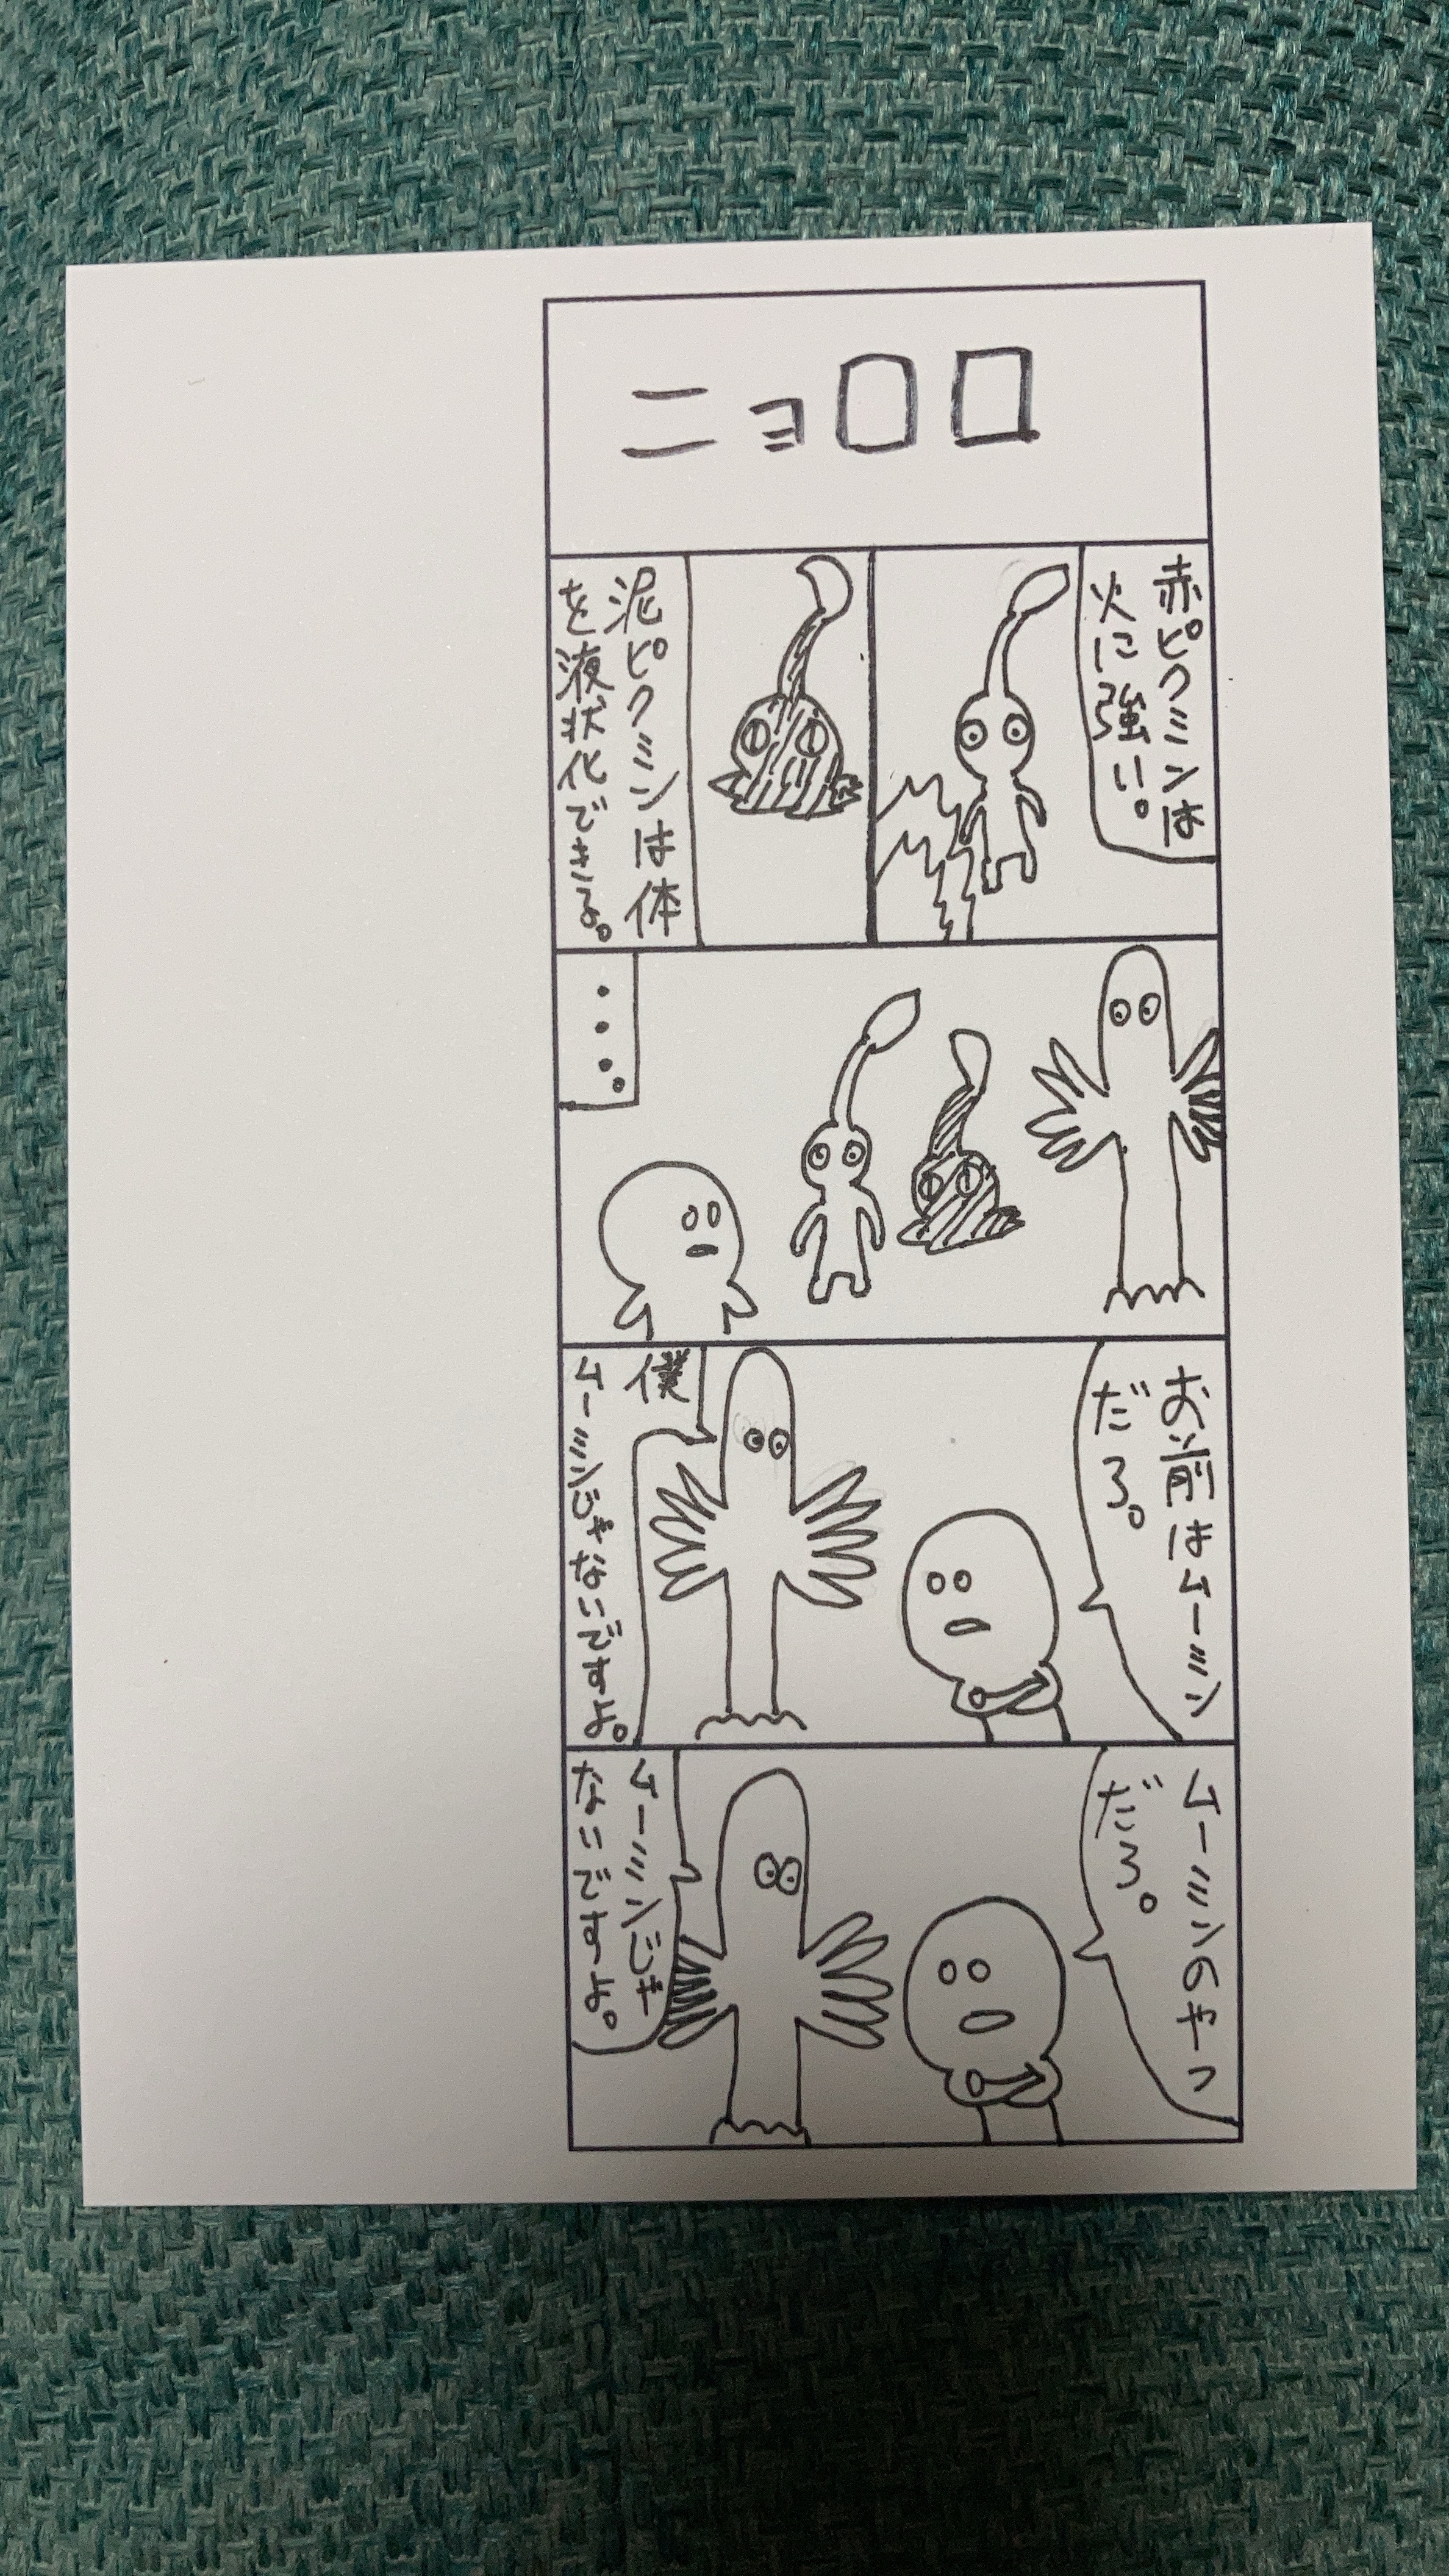 ニョロロ
赤ピクミンは
火に強い。
泥ピクミンは体
を液状化できる。
・・・。
お前はムーミン
だろ。
僕
ムーミンじゃないですよ。
ムーミンのやつ
だろ。
ムーミンじゃ
ないですよ。